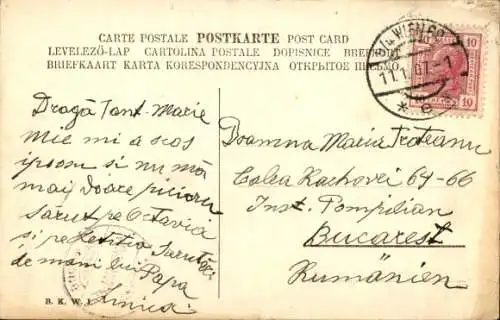 CARTE POSTALE POSTKARTE POST CARD
LEVELEZŐ-LAP CARTOLINA POSTALE DOPISNICE
BRIEFKAART KARTA KORESPONDENCYJNA ОТКРЫТОЕ
WIEN 60
11.1.07-1
* e
10 10
Dragă Tant-Marie
Mie mi a scos
ipsosu si nu mă
mai doare picioru
Sărut pe Octavia
si pe Letitia Sărutăci
de mâni lui Papa
Doamna Maria
Calea Rachovei 64-66
Inst. Pompilian
Bucarest
Rumänien
B. K. W. I.